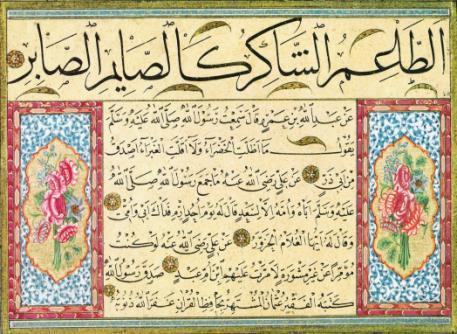 الطاعم الشاكر كالصايم الصابر
عن عبد الله بن عمرو قال سمعت رسول الله صلى الله عليه وسلم
يقول ما اظلت الخضراء ولا اقلت الغبراء اصدق
من ابي ذر عن علي رضي الله عنه ما جمع رسول الله صلى الله
عليه وسلم اباه وامه الا لسعد قال له يوم احد ارم فداك ابي وامي
وقال له ايها الغلام الحزور عن علي رضي الله عنه لو كنت
مؤمرا عن غير مشورة لامرت عليهم ابن ام عبد صدق رسول الله
كتبه الفقير عثمان الشهير بحافظ القرآن غفر الله ذنوبه